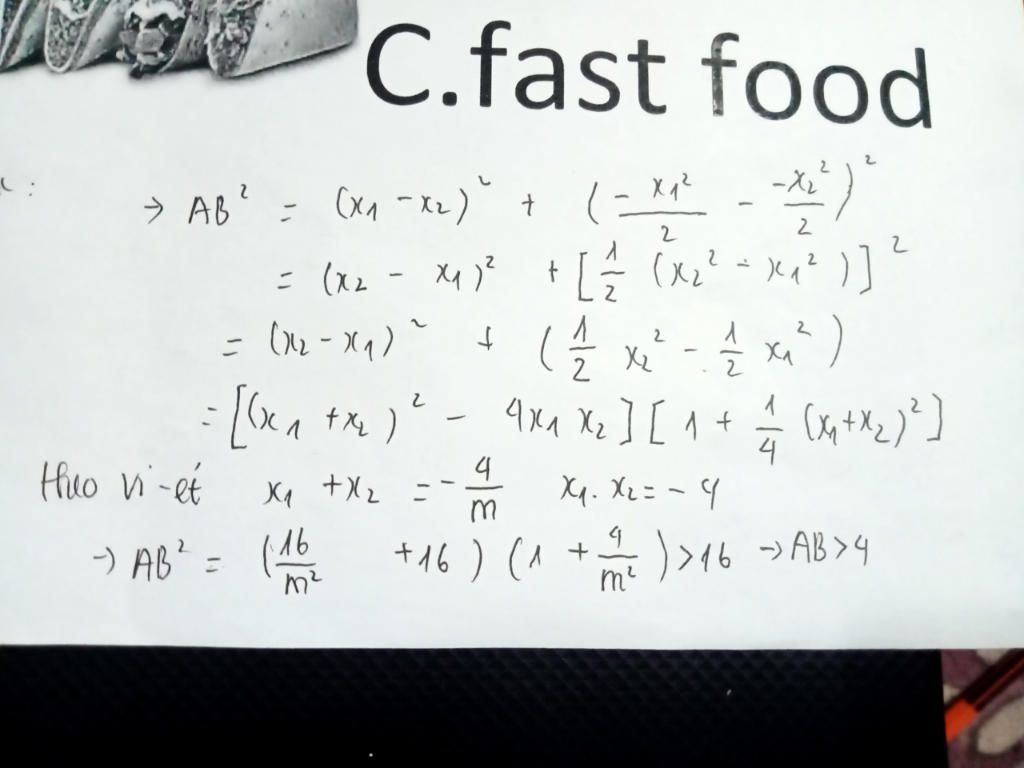 C.fast food
→ AB² = (x₁ - x₂)² + (-x₁²/2 - -x₂²/2)²
= (x₂ - x₁)² + [1/2 (x₂² - x₁²)]²
= (x₂ - x₁)² + (1/2 x₂² - 1/2 x₁²)
= [(x₁ + x₂)² - 4x₁ x₂] [1 + 1/4 (x₁+x₂)²]
theo vi-ét x₁ + x₂ = -4/m x₁. x₂ = -4
→ AB² = (16/m² + 16) (1 + 4/m²) > 16 → AB > 4